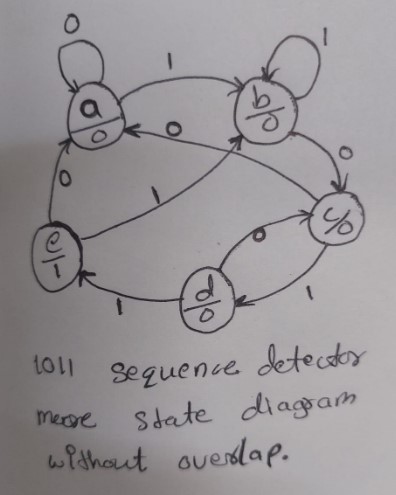 0
1
1
a
0
b
0
0
0
0
1
e
1
c/0
0
d
0
1
1
1011 sequence detector
moore state diagram
without overlap.